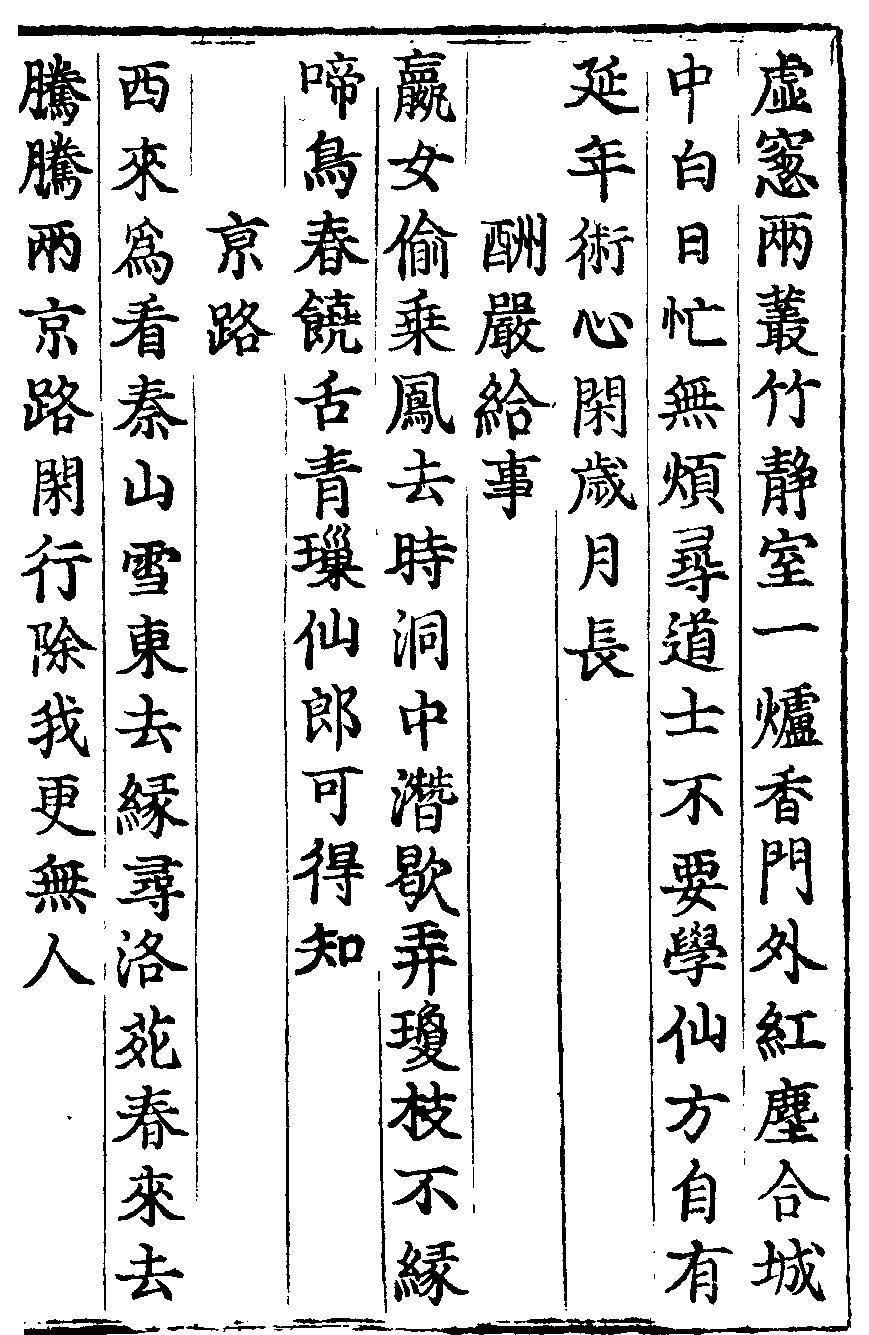 虛窻兩叢竹靜室一爐香門外紅塵合城
中白日忙無煩尋道士不要學仙方自有
延年術心閑歲月長
酬嚴給事
嬴女偷乗鳳去時洞中潛歇弄瓊枝不縁
啼鳥春饒舌青瑣仙郎可得知
亰路
西來爲看秦山雪東去縁尋洛苑春來去
騰騰兩京路閑行除我更無人